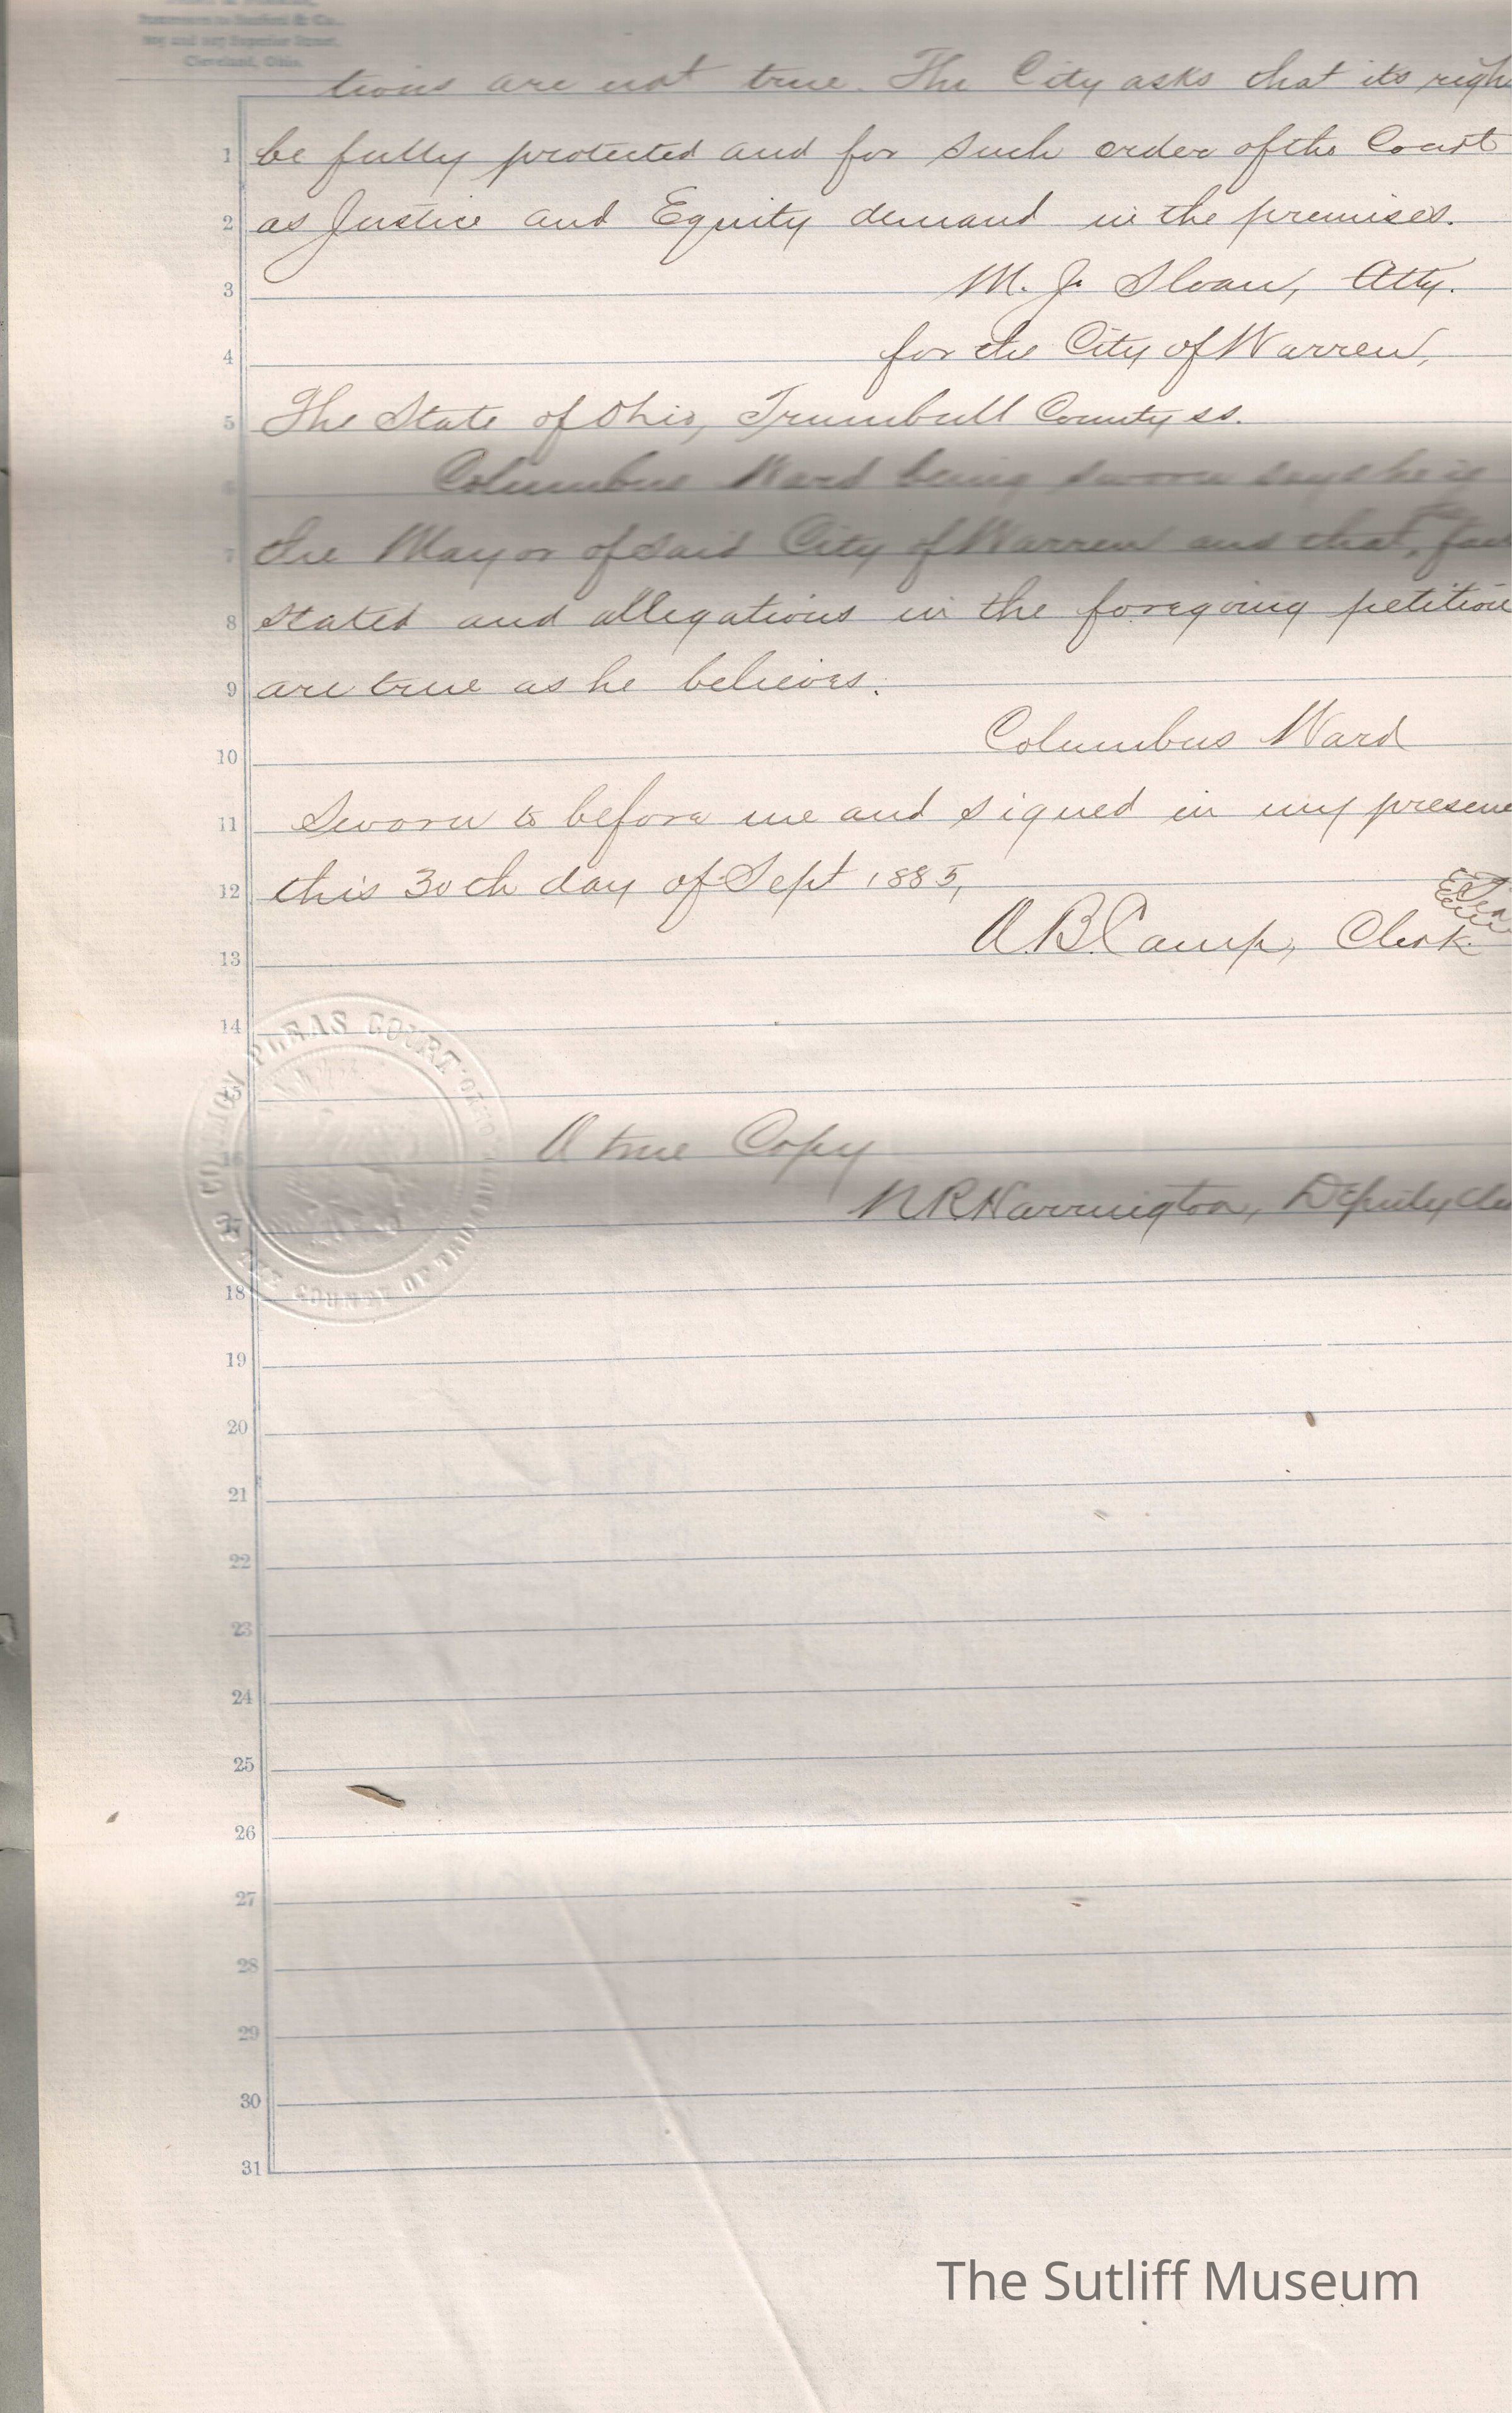 Successors to Sanford & Co.,
Superior Street,
Cleveland, Ohio.
tions are not true. The City asks that its righ
1 be fully protected and for such order of the Court
2 as Justice and Equity demand in the premises.
3 M. J. Sloan, Atty.
4 for the City of Warren,
5 The State of Ohio, Trumbull County ss.
6 Columbus Ward being sworn says he is
the
7 the Mayor of said City of Warren and that
8 stated and allegations in the foregoing petition
9 are true as he believes.
10 Columbus Ward
11 Sworn to before me and signed in my presenc
12 this 30th day of Sept 1885,
Sea
13 A. B. Camp, Clerk
14
15
COMMON PLEAS COURT OF THE COUNTY OF TRUMBULL
16 A true Copy
17 N R Harrington, Deputy Cle
18
19
20
21
22
23
24
25
26
27
28
29
30
31
The Sutliff Museum